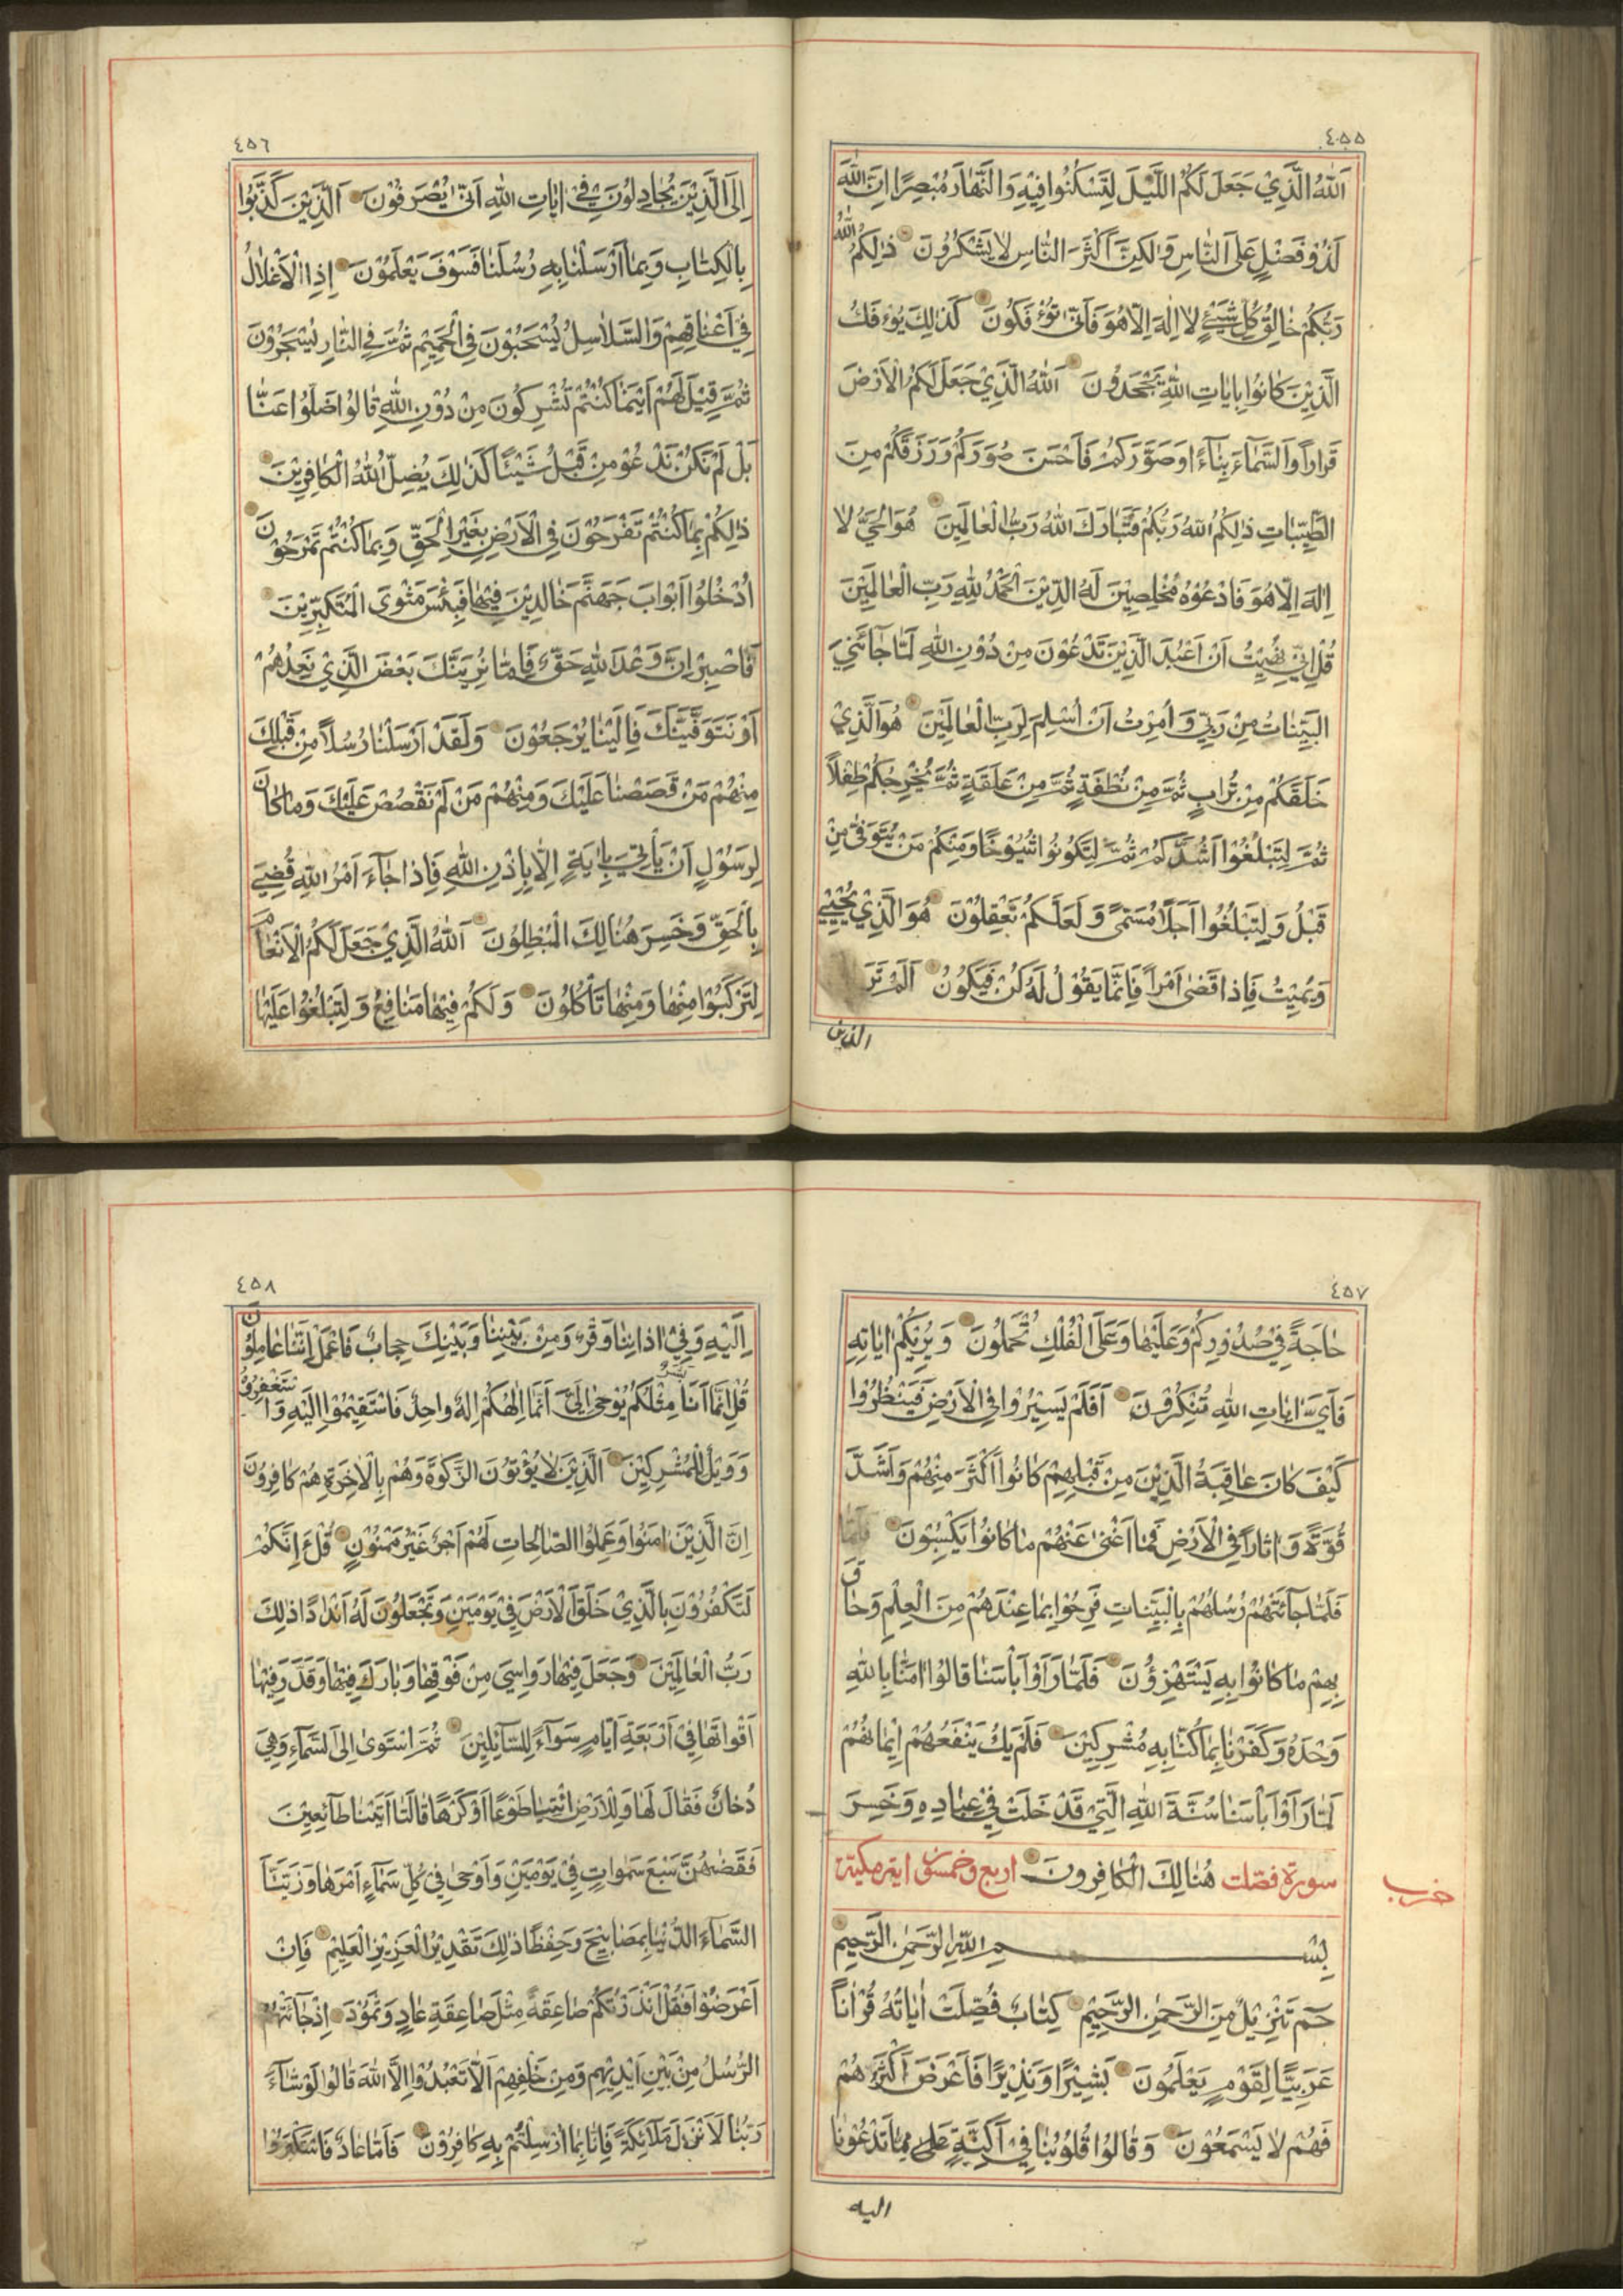 ٤٥٥
اَللّٰهُ الَّذِيْ جَعَلَ لَكُمُ اللَّيْلَ لِتَسْكُنُوا فِيْهِ وَالنَّهٰارَ مُبْصِرًا اِنَّ اللّٰهَ
لَذُوْ فَضْلٍ عَلَى النّٰاسِ وَلٰكِنَّ اَكْثَرَ النّٰاسِ لٰا يَشْكُرُونَ ذٰلِكُمُ اللّٰهُ
رَبُّكُمْ خٰالِقُ كُلِّ شَيْءٍ لٰا اِلٰهَ اِلّٰا هُوَ فَاَنّٰى تُؤْفَكُونَ كَذٰلِكَ يُؤْفَكُ
الَّذِيْنَ كٰانُوا بِاٰيٰاتِ اللّٰهِ يَجْحَدُونَ اَللّٰهُ الَّذِيْ جَعَلَ لَكُمُ الْاَرْضَ
قَرٰارًا وَالسَّمٰآءَ بِنٰآءً وَصَوَّرَكُمْ فَاَحْسَنَ صُوَرَكُمْ وَرَزَقَكُمْ مِنَ
الطَّيِّبٰاتِ ذٰلِكُمُ اللّٰهُ رَبُّكُمْ فَتَبٰارَكَ اللّٰهُ رَبُّ الْعٰالَمِيْنَ هُوَ الْحَيُّ لٰا
اِلٰهَ اِلّٰا هُوَ فَادْعُوْهُ مُخْلِصِيْنَ لَهُ الدِّيْنَ اَلْحَمْدُ لِلّٰهِ رَبِّ الْعٰالَمِيْنَ
قُلْ اِنِّيْ نُهِيْتُ اَنْ اَعْبُدَ الَّذِيْنَ تَدْعُوْنَ مِنْ دُوْنِ اللّٰهِ لَمّٰا جٰآئَنِيَ
الْبَيِّنٰاتُ مِنْ رَبِّيْ وَاُمِرْتُ اَنْ اُسْلِمَ لِرَبِّ الْعٰالَمِيْنَ هُوَ الَّذِيْ
خَلَقَكُمْ مِنْ تُرٰابٍ ثُمَّ مِنْ نُطْفَةٍ ثُمَّ مِنْ عَلَقَةٍ ثُمَّ يُخْرِجُكُمْ طِفْلًا
ثُمَّ لِتَبْلُغُوْا اَشُدَّكُمْ ثُمَّ لِتَكُونُوا شُيُوْخًا وَمِنْكُمْ مَنْ يُتَوَفّٰى مِنْ
قَبْلُ وَلِتَبْلُغُوْا اَجَلًا مُسَمًّى وَلَعَلَّكُمْ تَعْقِلُوْنَ هُوَ الَّذِيْ يُحْيِيْ
وَيُمِيْتُ فَاِذٰا قَضٰى اَمْرًا فَاِنَّمٰا يَقُوْلُ لَهُ كُنْ فَيَكُوْنُ اَلَمْ تَرَ
الذين
٤٥٦
اِلَى الَّذِيْنَ يُجٰادِلُوْنَ فِيْ اٰيٰاتِ اللّٰهِ اَنّٰى يُصْرَفُوْنَ اَلَّذِيْنَ كَذَّبُوْا
بِالْكِتٰابِ وَبِمٰا اَرْسَلْنٰا بِهِ رُسُلَنٰا فَسَوْفَ يَعْلَمُوْنَ اِذِ الْاَغْلٰالُ
فِيْ اَعْنٰاقِهِمْ وَالسَّلٰاسِلُ يُسْحَبُوْنَ فِي الْحَمِيْمِ ثُمَّ فِي النّٰارِ يُسْجَرُوْنَ
ثُمَّ قِيْلَ لَهُمْ اَيْنَمٰا كُنْتُمْ تُشْرِكُونَ مِنْ دُوْنِ اللّٰهِ قٰالُوا ضَلُّوْا عَنّٰا
بَلْ لَمْ نَكُنْ نَدْعُوْ مِنْ قَبْلُ شَيْئًا كَذٰلِكَ يُضِلُّ اللّٰهُ الْكٰافِرِيْنَ
ذٰلِكُمْ بِمٰا كُنْتُمْ تَفْرَحُوْنَ فِي الْاَرْضِ بِغَيْرِ الْحَقِّ وَبِمٰا كُنْتُمْ تَمْرَحُوْنَ
اُدْخُلُوْا اَبْوٰابَ جَهَنَّمَ خٰالِدِيْنَ فِيْهٰا فَبِئْسَ مَثْوَى الْمُتَكَبِّرِيْنَ
فَاصْبِرْ اِنَّ وَعْدَ اللّٰهِ حَقٌّ فَاِمّٰا نُرِيَنَّكَ بَعْضَ الَّذِيْ نَعِدُهُمْ
اَوْ نَتَوَفَّيَنَّكَ فَاِلَيْنٰا يُرْجَعُوْنَ وَلَقَدْ اَرْسَلْنٰا رُسُلًا مِنْ قَبْلِكَ
مِنْهُمْ مَنْ قَصَصْنٰا عَلَيْكَ وَمِنْهُمْ مَنْ لَمْ نَقْصُصْ عَلَيْكَ وَمٰا كٰانَ
لِرَسُوْلٍ اَنْ يَأْتِيَ بِاٰيَةٍ اِلّٰا بِاِذْنِ اللّٰهِ فَاِذٰا جٰآءَ اَمْرُ اللّٰهِ قُضِيَ
بِالْحَقِّ وَخَسِرَ هُنٰالِكَ الْمُبْطِلُونَ اَللّٰهُ الَّذِيْ جَعَلَ لَكُمُ الْاَنْعٰامَ
لِتَرْكَبُوْا مِنْهٰا وَمِنْهٰا تَأْكُلُونَ وَلَكُمْ فِيْهٰا مَنٰافِعُ وَلِتَبْلُغُوْا عَلَيْهٰا
٤٥٧
حٰاجَةً فِيْ صُدُوْرِكُمْ وَعَلَيْهٰا وَعَلَى الْفُلْكِ تُحْمَلُونَ وَيُرِيْكُمْ اٰيٰاتِهِ
فَاَيَّ اٰيٰاتِ اللّٰهِ تُنْكِرُوْنَ اَفَلَمْ يَسِيْرُوْا فِي الْاَرْضِ فَيَنْظُرُوْا
كَيْفَ كٰانَ عٰاقِبَةُ الَّذِيْنَ مِنْ قَبْلِهِمْ كٰانُوْا اَكْثَرَ مِنْهُمْ وَاَشَدَّ
قُوَّةً وَاٰثٰارًا فِي الْاَرْضِ فَمٰا اَغْنٰى عَنْهُمْ مٰا كٰانُوْا يَكْسِبُوْنَ فَلَمّٰا
فَلَمّٰا جٰآئَتْهُمْ رُسُلُهُمْ بِالْبَيِّنٰاتِ فَرِحُوْا بِمٰا عِنْدَهُمْ مِنَ الْعِلْمِ وَحٰاقَ
بِهِمْ مٰا كٰانُوْا بِهِ يَسْتَهْزِؤُنَ فَلَمّٰا رَاَوْا بَأْسَنٰا قٰالُوْا اٰمَنّٰا بِاللّٰهِ
وَحْدَهُ وَكَفَرْنٰا بِمٰا كُنّٰا بِهِ مُشْرِكِيْنَ فَلَمْ يَكُ يَنْفَعُهُمْ اِيْمٰانُهُمْ
لَمّٰا رَاَوْا بَأْسَنٰا سُنَّةَ اللّٰهِ الَّتِيْ قَدْ خَلَتْ فِيْ عِبٰادِهِ وَخَسِرَ
سورة فصّلت هُنٰالِكَ الْكٰافِرونَ اربع وخمسون اية مكيّة
حزب
بِسْمِ اللّٰهِ الرَّحْمٰنِ الرَّحِيمِ
حٰم تَنْزِيْلٌ مِنَ الرَّحْمٰنِ الرَّحِيْمِ كِتٰابٌ فُصِّلَتْ اٰيٰاتُهُ قُرْاٰنًا
عَرَبِيًّا لِقَوْمٍ يَعْلَمُونَ بَشِيْرًا وَنَذِيْرًا فَاَعْرَضَ اَكْثَرُهُمْ
فَهُمْ لٰا يَسْمَعُوْنَ وَقٰالُوْا قُلُوْبُنٰا فِيْ اَكِنَّةٍ مِمّٰا تَدْعُوْنٰا
اليه
٤٥٨
اِلَيْهِ وَفِيْ اٰذٰانِنٰا وَقْرٌ وَمِنْ بَيْنِنٰا وَبَيْنِكَ حِجٰابٌ فَاعْمَلْ اِنَّنٰا عٰامِلُوْنَ
قُلْ اِنَّمٰا اَنَا بَشَرٌ مِثْلُكُمْ يُوْحٰى اِلَيَّ اَنَّمٰا اِلٰهُكُمْ اِلٰهٌ وٰاحِدٌ فَاسْتَقِيْمُوْا اِلَيْهِ وَاسْتَغْفِرُوْهُ
وَوَيْلٌ لِلْمُشْرِكِيْنَ اَلَّذِيْنَ لٰا يُؤْتُوْنَ الزَّكٰوةَ وَهُمْ بِالْاٰخِرَةِ هُمْ كٰافِرُوْنَ
اِنَّ الَّذِيْنَ اٰمَنُوْا وَعَمِلُوا الصّٰالِحٰاتِ لَهُمْ اَجْرٌ غَيْرُ مَمْنُوْنٍ قُلْ ءَاِنَّكُمْ
لَتَكْفُرُوْنَ بِالَّذِيْ خَلَقَ الْاَرْضَ فِيْ يَوْمَيْنِ وَتَجْعَلُوْنَ لَهُ اَنْدٰادًا ذٰلِكَ
رَبُّ الْعٰالَمِيْنَ وَجَعَلَ فِيْهٰا رَوٰاسِيَ مِنْ فَوْقِهٰا وَبٰارَكَ فِيْهٰا وَقَدَّرَ فِيْهٰا
اَقْوٰاتَهٰا فِيْ اَرْبَعَةِ اَيّٰامٍ سَوٰآءً لِلسّٰآئِلِيْنَ ثُمَّ اسْتَوٰى اِلَى السَّمٰآءِ وَهِيَ
دُخٰانٌ فَقٰالَ لَهٰا وَلِلْاَرْضِ ائْتِيٰا طَوْعًا اَوْ كَرْهًا قٰالَتٰا اَتَيْنٰا طٰآئِعِيْنَ
فَقَضٰهُنَّ سَبْعَ سَمٰوٰاتٍ فِيْ يَوْمَيْنِ وَاَوْحٰى فِيْ كُلِّ سَمٰآءٍ اَمْرَهٰا وَزَيَّنَّا
السَّمٰآءَ الدُّنْيٰا بِمَصٰابِيْحَ وَحِفْظًا ذٰلِكَ تَقْدِيْرُ الْعَزِيْزِ الْعَلِيْمِ فَاِنْ
اَعْرَضُوْا فَقُلْ اَنْذَرْتُكُمْ صٰاعِقَةً مِثْلَ صٰاعِقَةِ عٰادٍ وَثَمُوْدَ اِذْ جٰآئَتْهُمُ
الرُّسُلُ مِنْ بَيْنِ اَيْدِيْهِمْ وَمِنْ خَلْفِهِمْ اَلّٰا تَعْبُدُوْا اِلَّا اللّٰهَ قٰالُوْا لَوْ شٰآءَ
رَبُّنٰا لَاَنْزَلَ مَلٰآئِكَةً فَاِنّٰا بِمٰا اُرْسِلْتُمْ بِهِ كٰافِرُوْنَ فَاَمّٰا عٰادٌ فَاسْتَكْبَرُوْا